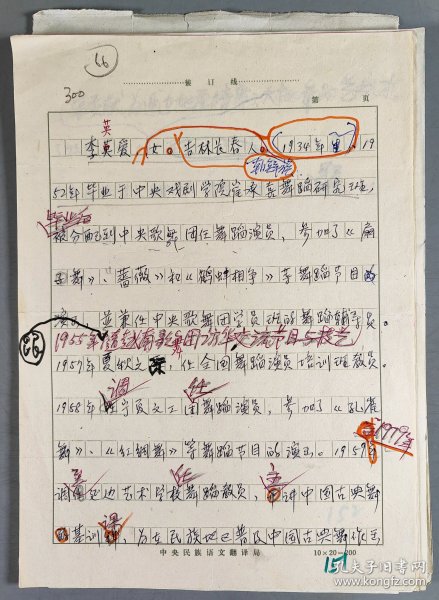 66
300
装订线
第 页
英
李英爱,女。吉林长春人。(1934年 )。19
朝鲜族
52年毕业于中央戏剧学院崔承喜舞蹈研究班,
毕业后
被分配到中央歌舞团任舞蹈演员,参加了《扇
舞》、《蔷薇》和《鹬蚌相争》等舞蹈节目的
演出。并兼任中央歌舞团学员班的舞蹈辅导员。
1955年 访华 节目与技艺
1957年 ,任全国舞蹈演员培训班教员。
调 任
1958年 文工团舞蹈演员,参加了《孔雀
1979年
舞》、《红绸舞》等舞蹈节目的演出。1959
任 主
调 延边艺术学校舞蹈教员, 讲中国古典舞
课
的基训 ,为在民族地区普及中国古典舞作出
中央民族语文翻译局
10×20=200
151
孔夫子旧书网
www.kongfz.com